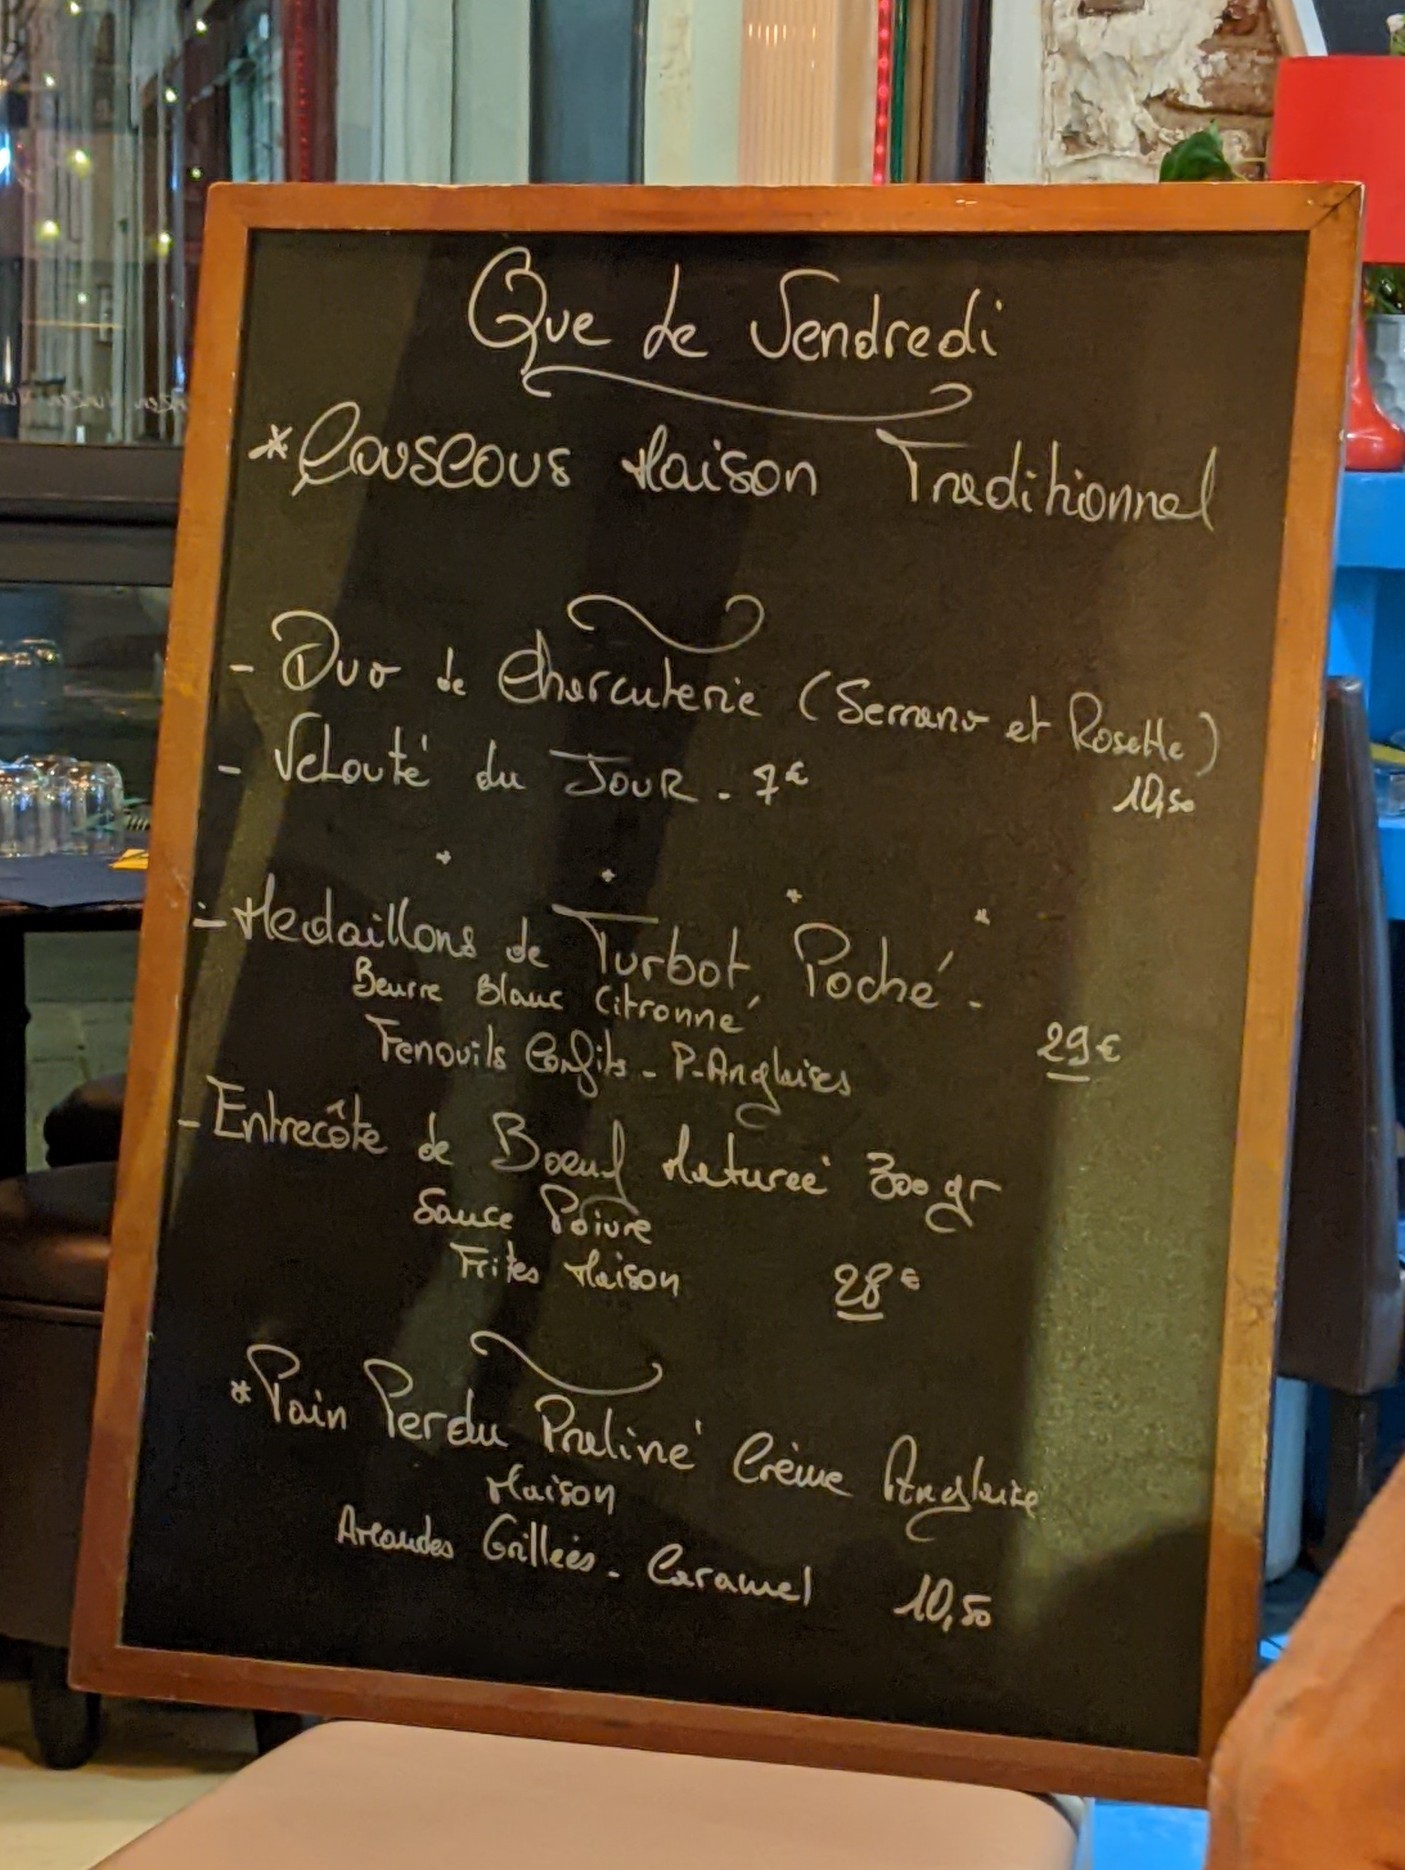 Que le Vendredi
* Couscous Maison Traditionnel
- Duo de Charcuterie (Serrano et Rosette)
10,50
- Velouté du JOUR - 7€
- Medaillons de Turbot Poché -
Beurre Blanc Citronné
Fenouils Confits - P-Anglaises
29€
- Entrecôte de Boeuf Maturée 300gr
Sauce Poivre
Frites Maison 28€
* Pain Perdu Praliné Crème Anglaise
Maison
Amandes Grillées - Caramel 10,50